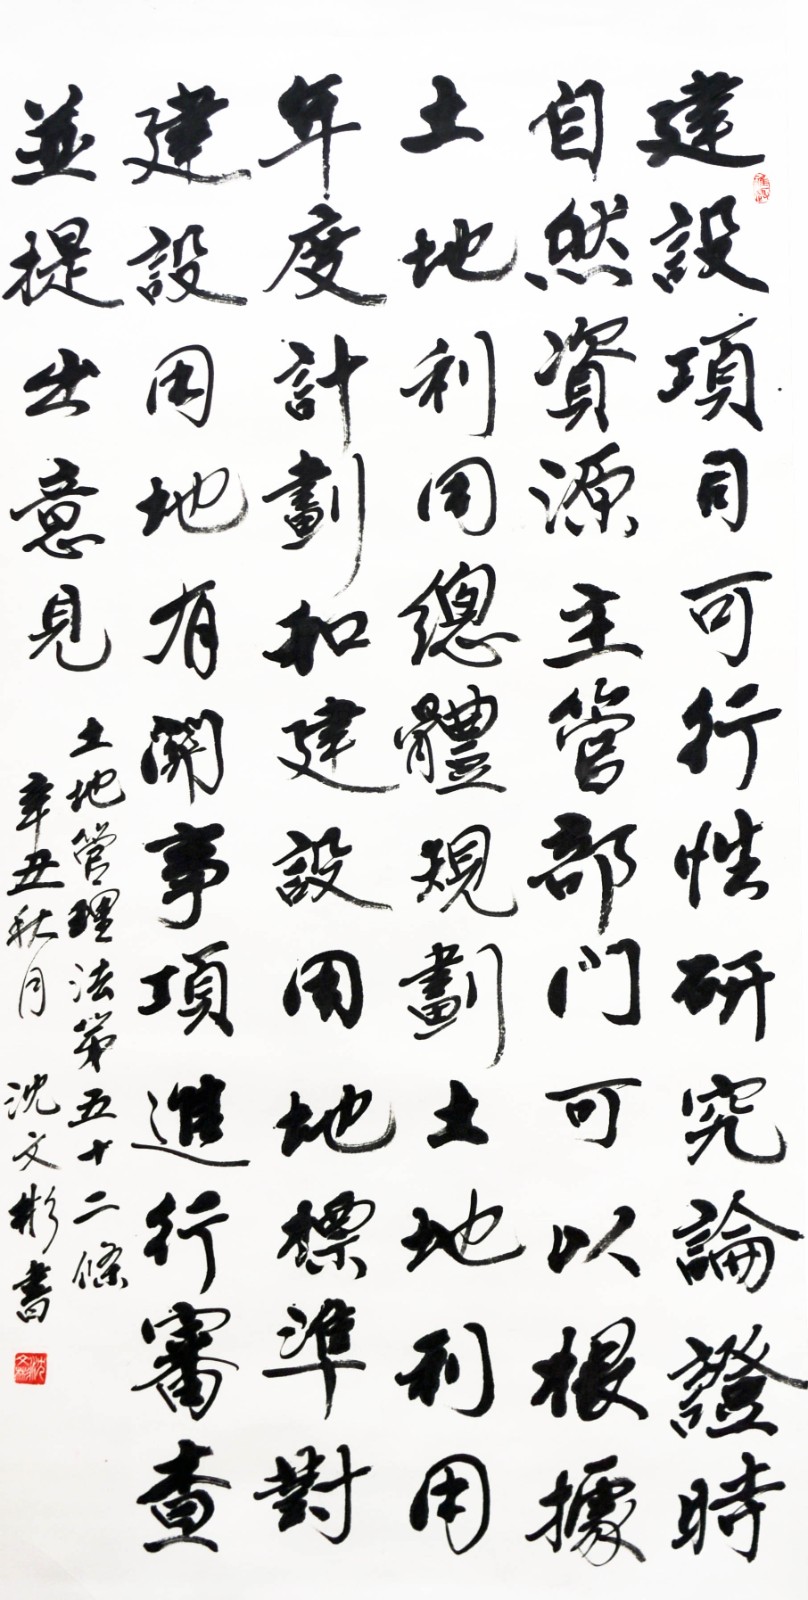 建設項目可行性研究論證時
自然資源主管部門可以根據
土地利用總體規劃土地利用
年度計劃和建設用地標準對
建設用地有關事項進行審查
並提出意見
土地管理法第五十二條
辛丑秋月 沈文彬書